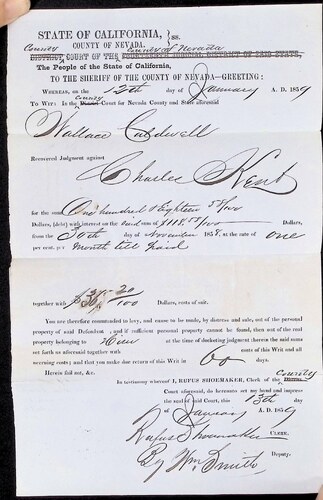 STATE OF CALIFORNIA, } ss.
COUNTY OF NEVADA.
County County of Nevada
DISTRICT COURT OF THE FOURTEENTH JUDICIAL DISTRICT OF SAID STATE,
The People of the State of California,
TO THE SHERIFF OF THE COUNTY OF NEVADA—GREETING:
WHEREAS, on the 12th day of January A. D. 1859
County
TO WIT: In the District Court for Nevada County and State aforesaid
Wallace Caldwell
Recovered Judgment against
Charles Kent
for the sum One hundred & Eighteen 58/100
Dollars, (debt) with interest on the said sum of $118.58/100 Dollars,
from the 30th day of November 1858, at the rate of one
per cent. per Month till paid
together with 20/100 Dollars, costs of suit.
You are therefore commanded to levy, and cause to be made, by distress and sale, out of the personal
property of said Defendant , and if sufficient personal property cannot be found, then out of the real
property belonging to Him at the time of docketing judgment herein the said
sum set forth as aforesaid together with costs of this Writ and all
accruing costs; and that you make due return of this Writ in 60 days.
Herein fail not, &c.
County
In testimony whereof I, RUFUS SHOEMAKER, Clerk of the District
Court aforesaid, do hereunto set my hand and impress
the seal of said Court, this 13th day
of January A. D. 1859
Rufus Shoemaker CLERK,
By Wm. Smith, Deputy.